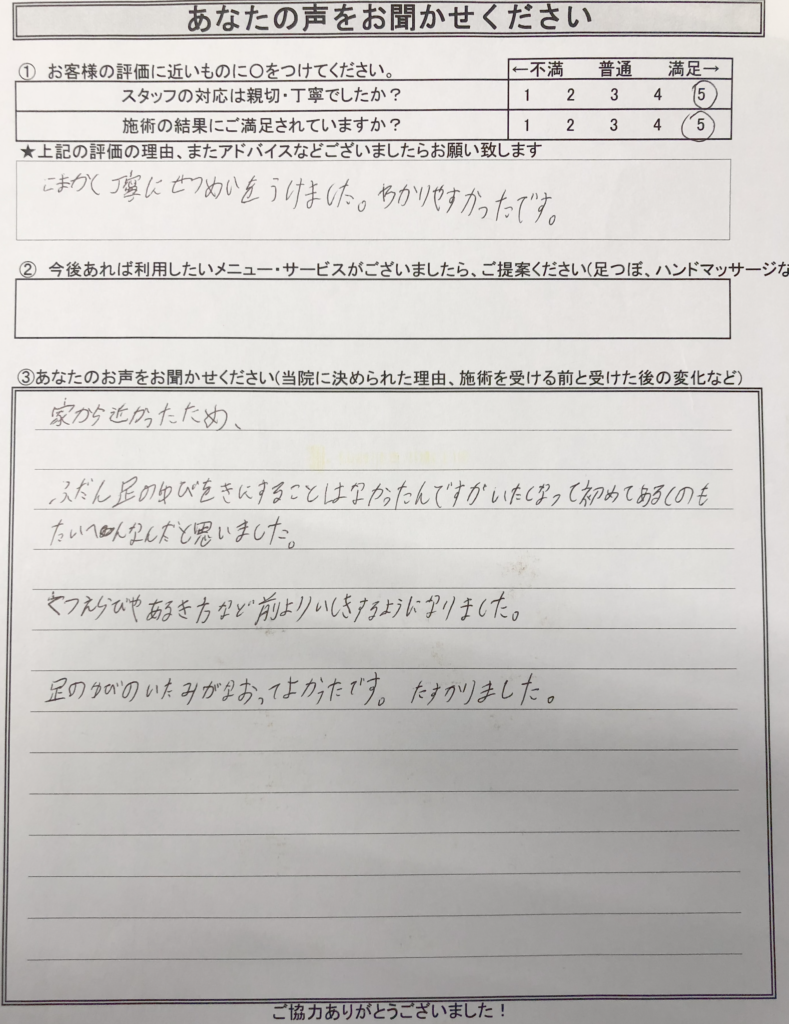 あなたの声をお聞かせください
① お客様の評価に近いものに○をつけてください。
←不満 普通 満足→
スタッフの対応は親切・丁寧でしたか？ 1 2 3 4 5
施術の結果にご満足されていますか？ 1 2 3 4 5
★上記の評価の理由、またアドバイスなどございましたらお願い致します
こまかく丁寧にせつめいをうけました。わかりやすかったです。
② 今後あれば利用したいメニュー・サービスがございましたら、ご提案ください(足つぼ、ハンドマッサージな
③あなたのお声をお聞かせください(当院に決められた理由、施術を受ける前と受けた後の変化など)
家から近かったため、
ふだん足のゆびをきにすることはなかったんですがいたくなって初めてあるくのも
たいへんなんだと思いました。
くつえらびやあるき方など前よりいしきするようになりました。
足のゆびのいたみがなおってよかったです。 たすかりました。
ご協力ありがとうございました！